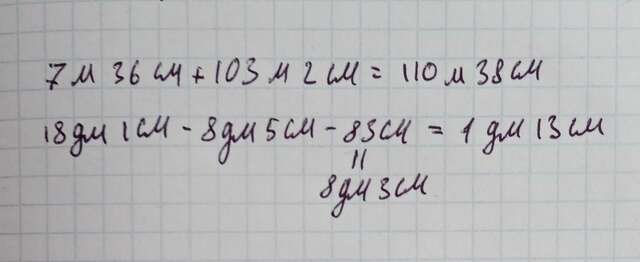 7 м 36 см + 103 м 2 см = 110 м 38 см
18 дм 1 см - 8 дм 5 см - 83 см = 1 дм 13 см
||
8 дм 3 см